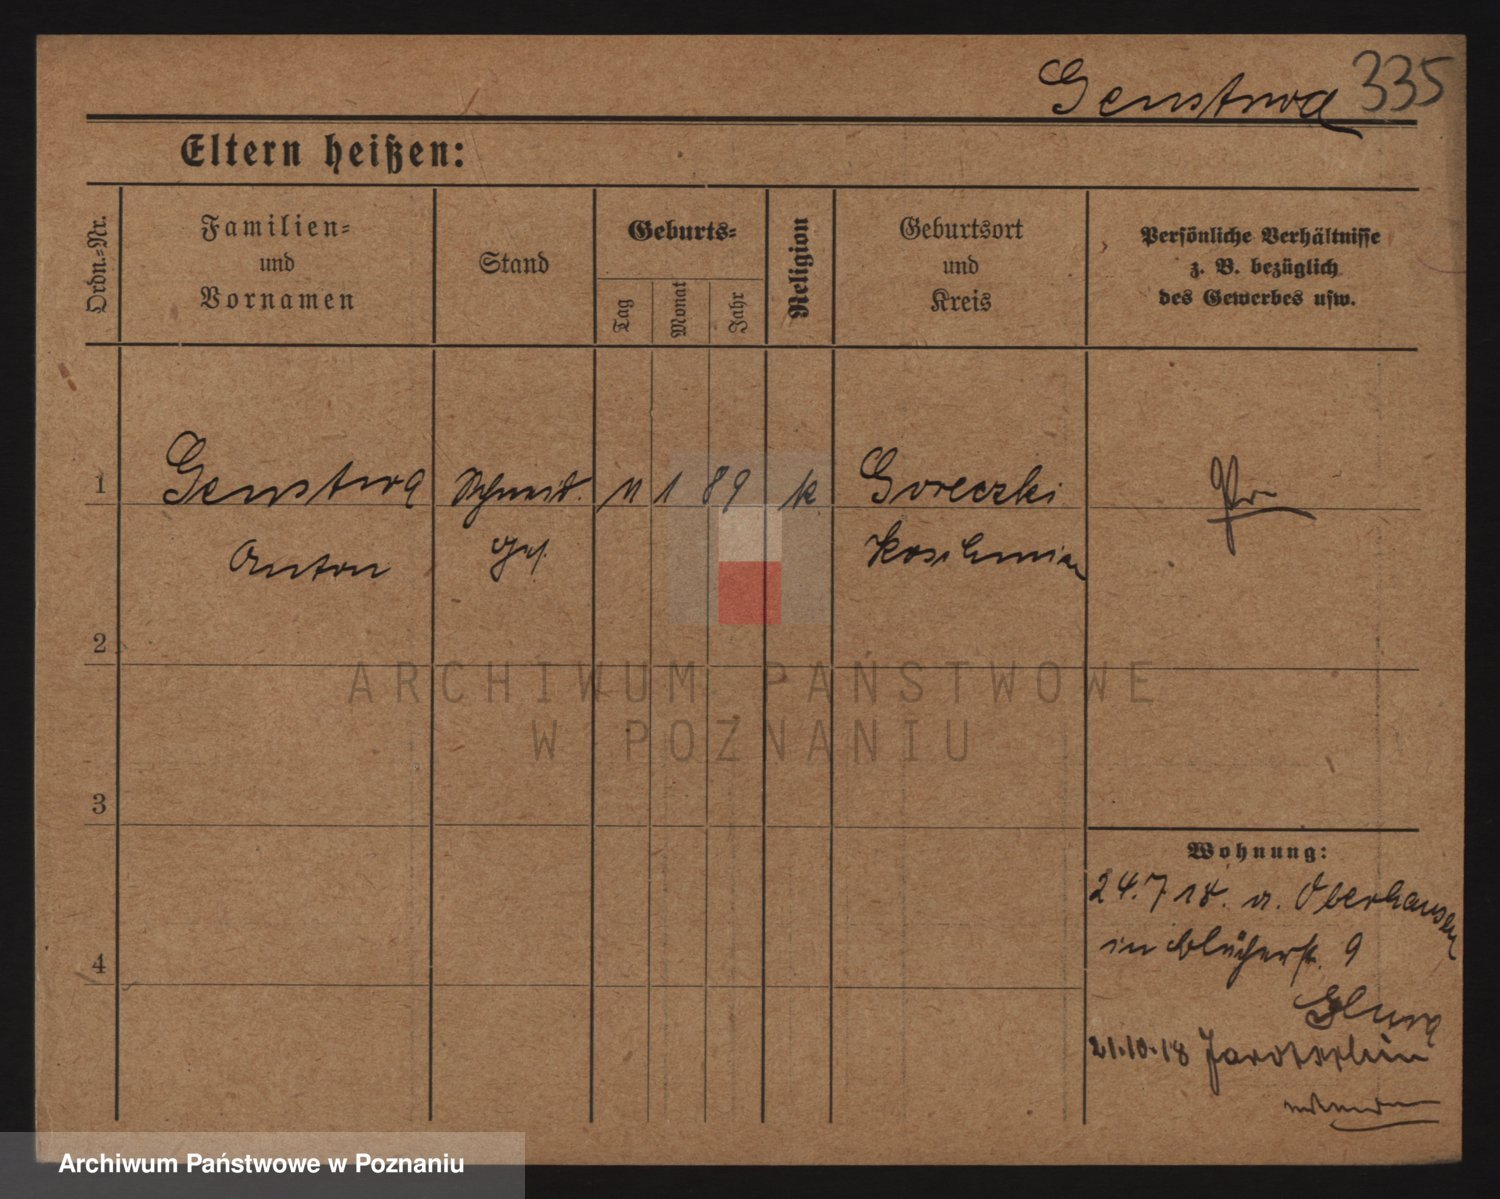 Genstwa 335
Eltern heißen:
Ordn.-Nr.
Familien-
und
Vornamen
Stand
Geburts-
Tag
Monat
Jahr
Religion
Geburtsort
und
Kreis
Persönliche Verhältnisse
z. B. bezüglich
des Gewerbes usw.
1 Genstwa Schneid. 11 1 89 k. Goreczki Pr.
Anton Ges. Koschmin
2
3
4
Wohnung:
24.7.18. a. Oberhausen
in Blücherstr. 9
21.10.18
ARCHIWUM PAŃSTWOWE
W POZNANIU
Archiwum Państwowe w Poznaniu